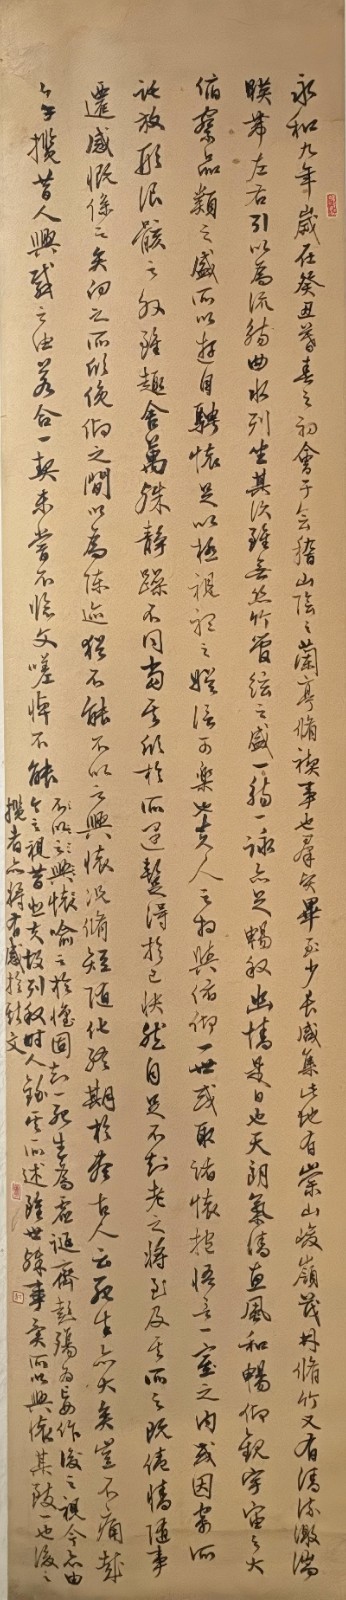 永和九年歲在癸丑暮春之初會于會稽山陰之蘭亭脩禊事也羣賢畢至少長咸集此地有崇山峻嶺茂林脩竹又有清流激湍
暎帶左右引以為流觴曲水列坐其次雖無絲竹管絃之盛一觴一詠亦足暢敘幽情是日也天朗氣清惠風和暢仰觀宇宙之大
俯察品類之盛所以遊目騁懷足以極視聽之娛信可樂也夫人之相與俯仰一世或取諸懷抱悟言一室之內或因寄所
託放形浪骸之外雖趣舍萬殊靜躁不同當其欣於所遇暫得於己快然自足不知老之將至及其所之既倦情隨事
遷感慨係之矣向之所欣俛仰之間以為陳迹猶不能不以之興懷況脩短隨化終期於盡古人云死生亦大矣豈不痛哉
每攬昔人興感之由若合一契未嘗不臨文嗟悼不能
不以之興懷喻之於懷固知一死生為虛誕齊彭殤為妄作後之視今亦由
今之視昔悲夫故列敘時人錄其所述雖世殊事異所以興懷其致一也後之
攬者亦將有感於斯文